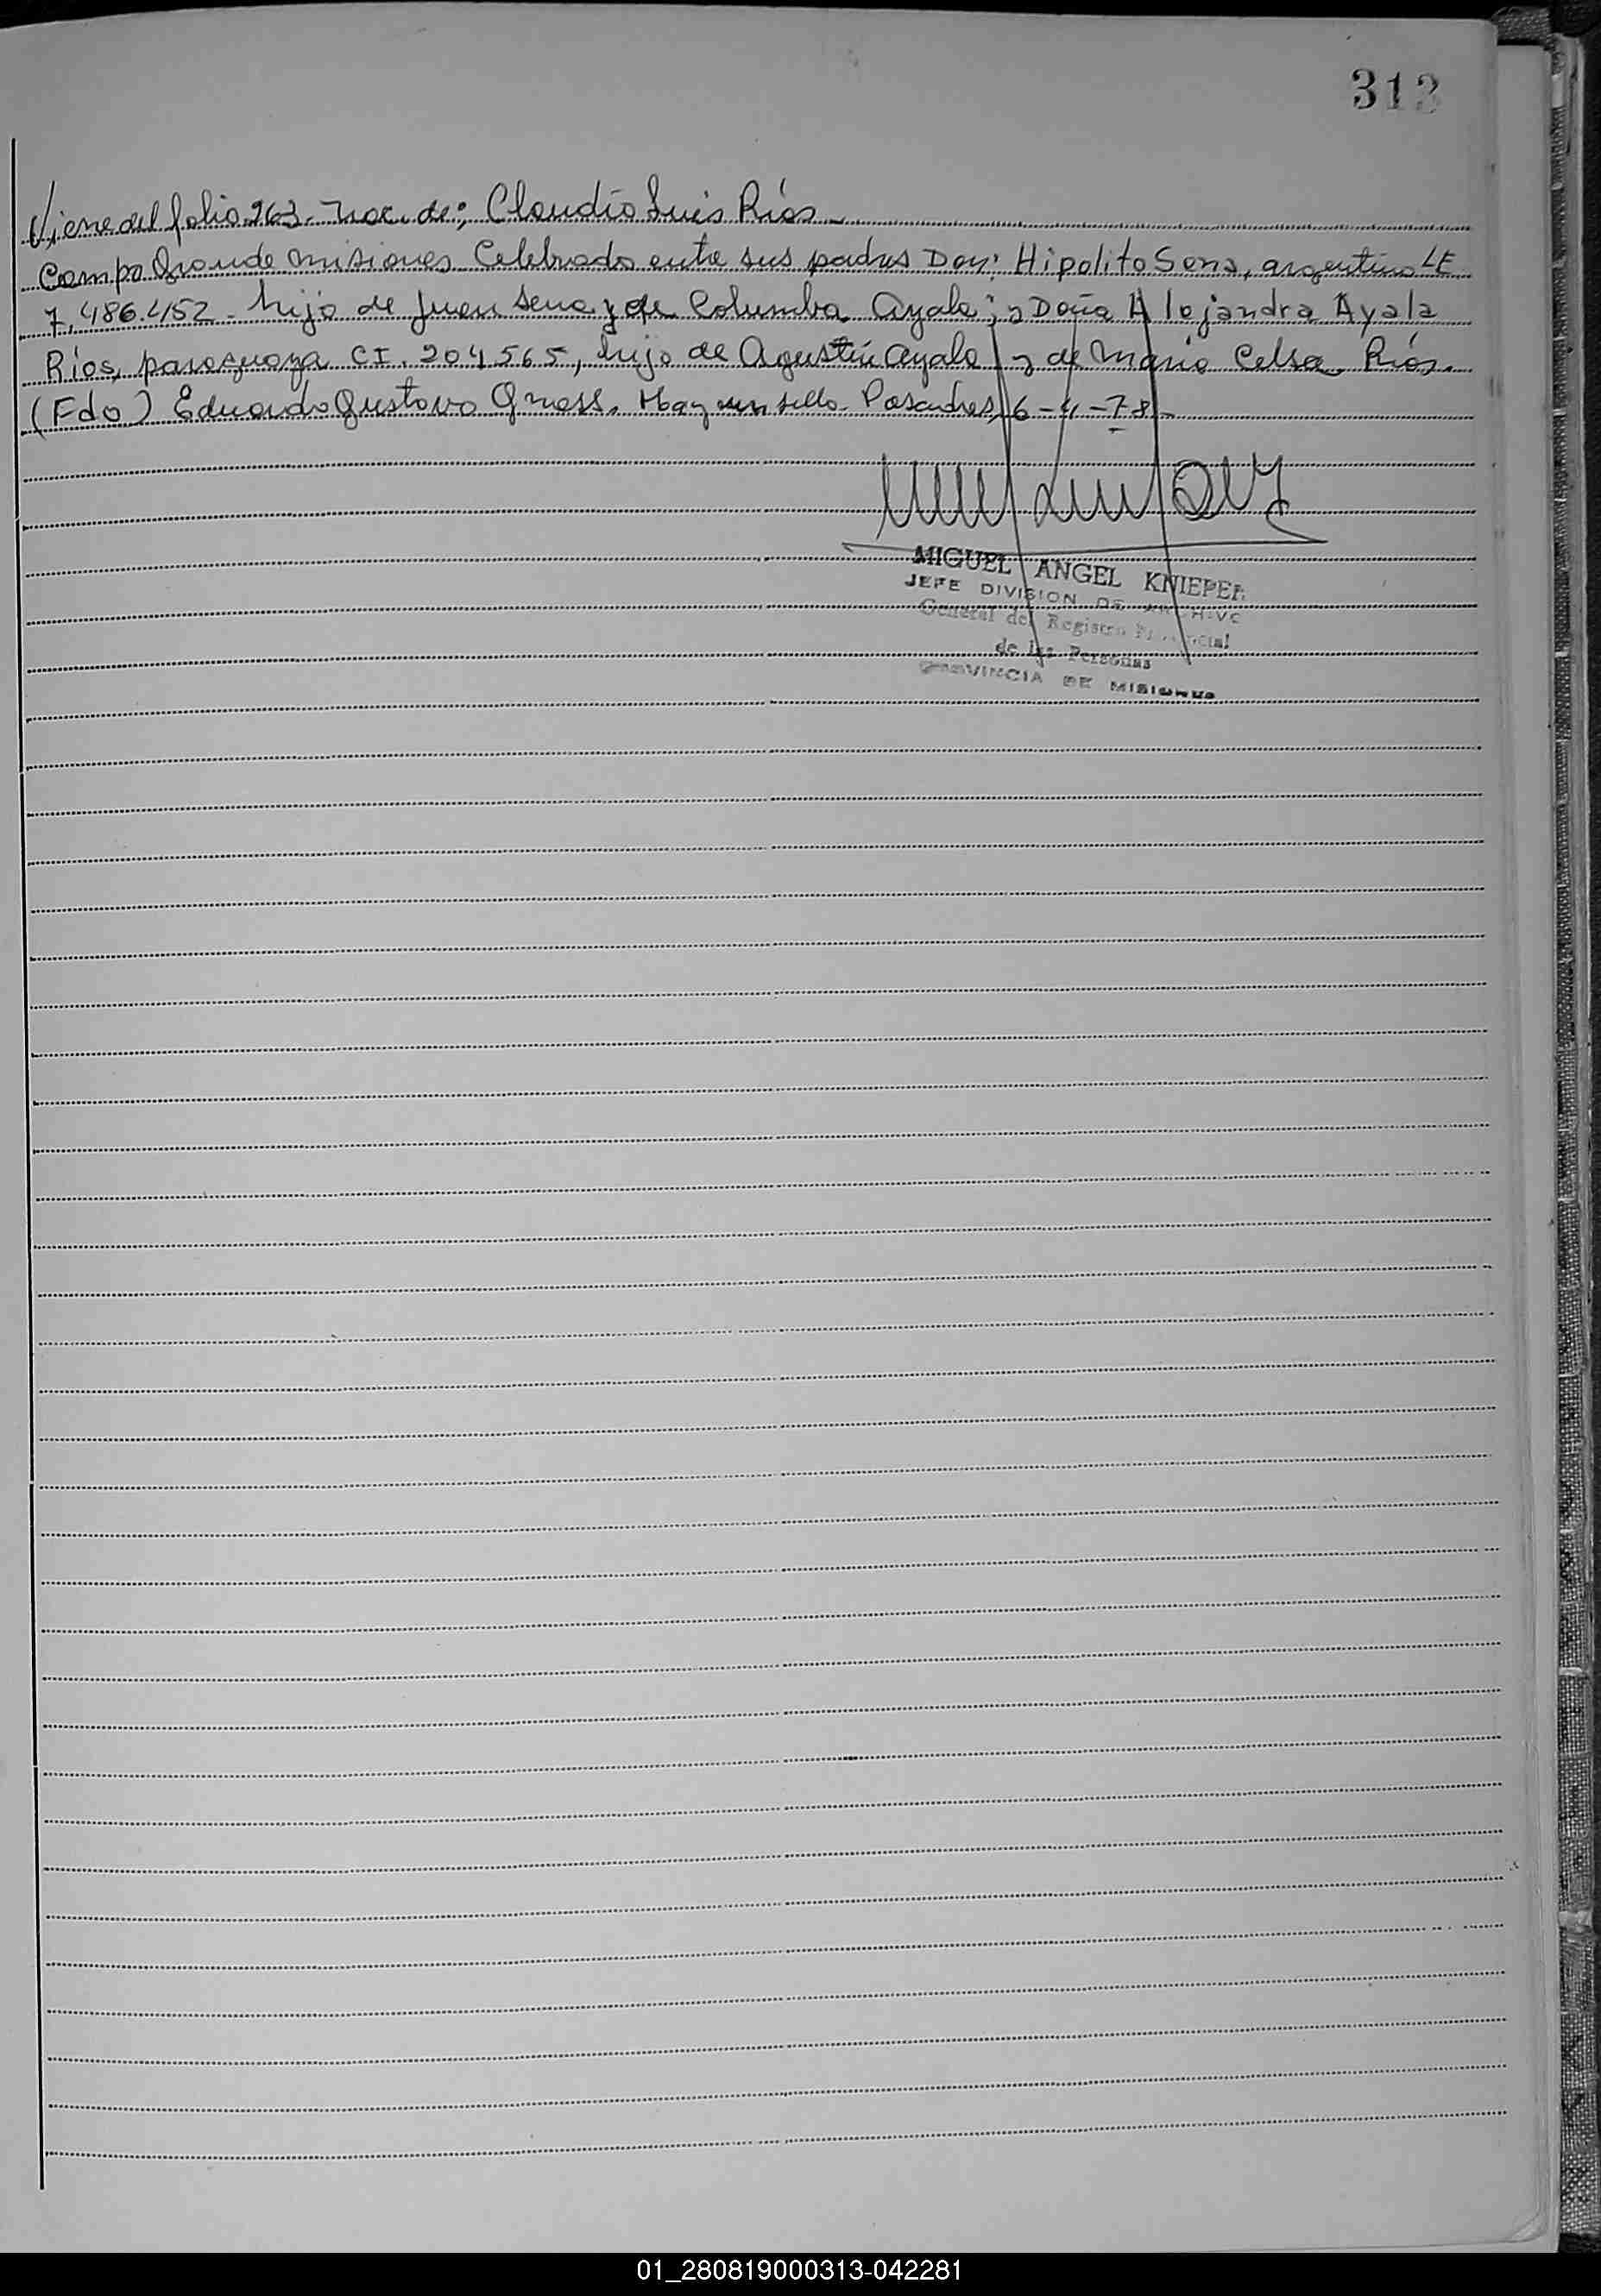 313
Viene del folio 263. Nac. de; Claudio Luis Ríos
Campo Grande Misiones Celebrado entre sus padres Don: Hipolito Sena, argentino LE
7.486.452 - hijo de Juan Sena y de Columba Ayala; y Doña Alejandra Ayala
Ríos, paraguaya CI. 204565, hija de Agustín Ayala y de Maria Celsa Ríos.
(Fdo) Eduardo Gustavo Gross. Hay un sello. Posadas, 6-4-78-
MIGUEL ANGEL KNIEPER
JEFE DIVISION DE ARCHIVO
General del Registro Provincial
de las Personas
PROVINCIA DE MISIONES
01_280819000313-042281